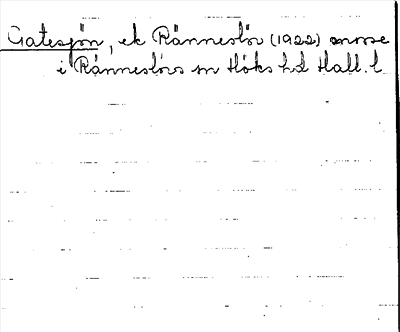 Gatesjön, ek Ränneslöv (1922) mosse
i Ränneslövs sn Höks hd Hall. l.